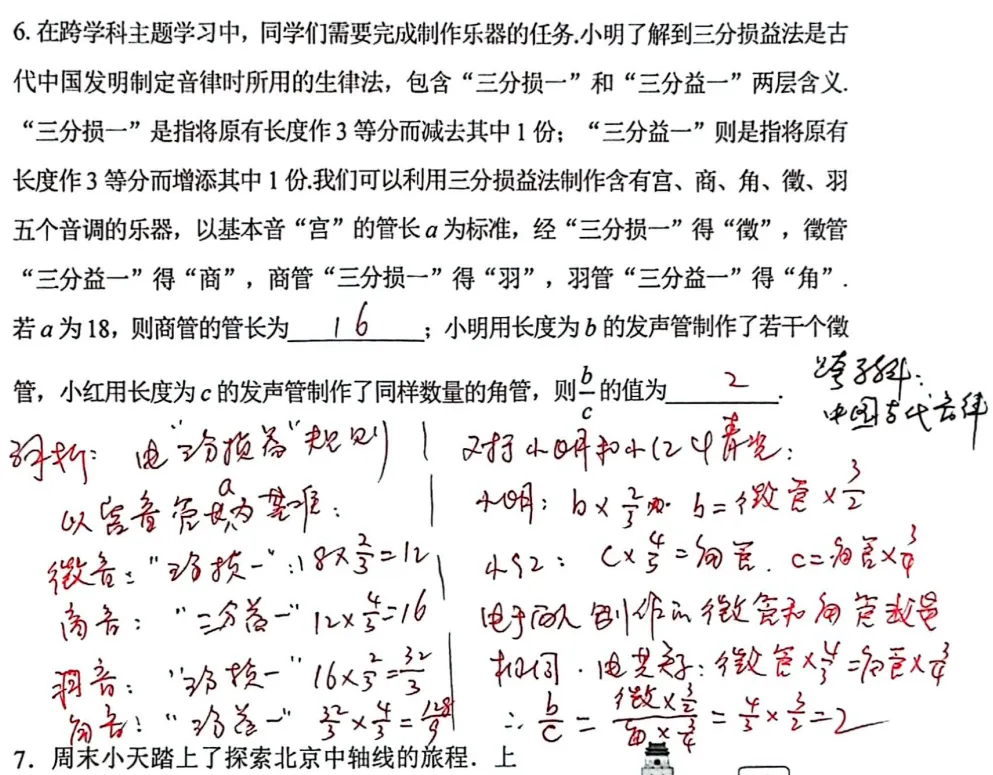 6. 在跨学科主题学习中，同学们需要完成制作乐器的任务.小明了解到三分损益法是古
代中国发明制定音律时所用的生律法，包含“三分损一”和“三分益一”两层含义.
“三分损一”是指将原有长度作 3 等分而减去其中 1 份；“三分益一”则是指将原有
长度作 3 等分而增添其中 1 份.我们可以利用三分损益法制作含有宫、商、角、徵、羽
五个音调的乐器，以基本音“宫”的管长 a 为标准，经“三分损一”得“徵”，徵管
“三分益一”得“商”，商管“三分损一”得“羽”，羽管“三分益一”得“角”.
若 a 为 18，则商管的管长为 16 ；小明用长度为 b 的发声管制作了若干个徵
管，小红用长度为 c 的发声管制作了同样数量的角管，则 b/c 的值为 2 .
跨学科：
中国古代音律
解析：由“三分损益”规则
以宫音管长a为基准：
徵音：“三分损一”：18×2/3=12
商音：“三分益一”12×4/3=16
羽音：“三分损一”16×2/3=32/3
角音：“三分益一”32/3×4/3=128/9
又对于小明和小红
小明：b×2/3 b=徵管×3/2
小红：c×4/3=角管. c=角管×3/4
由于两人制作的徵管和角管数量
相同.由其关系：徵管×4/3=角管×3/4
∴ b/c = = 4/3×3/2=2
7. 周末小天踏上了探索北京中轴线的旅程．上